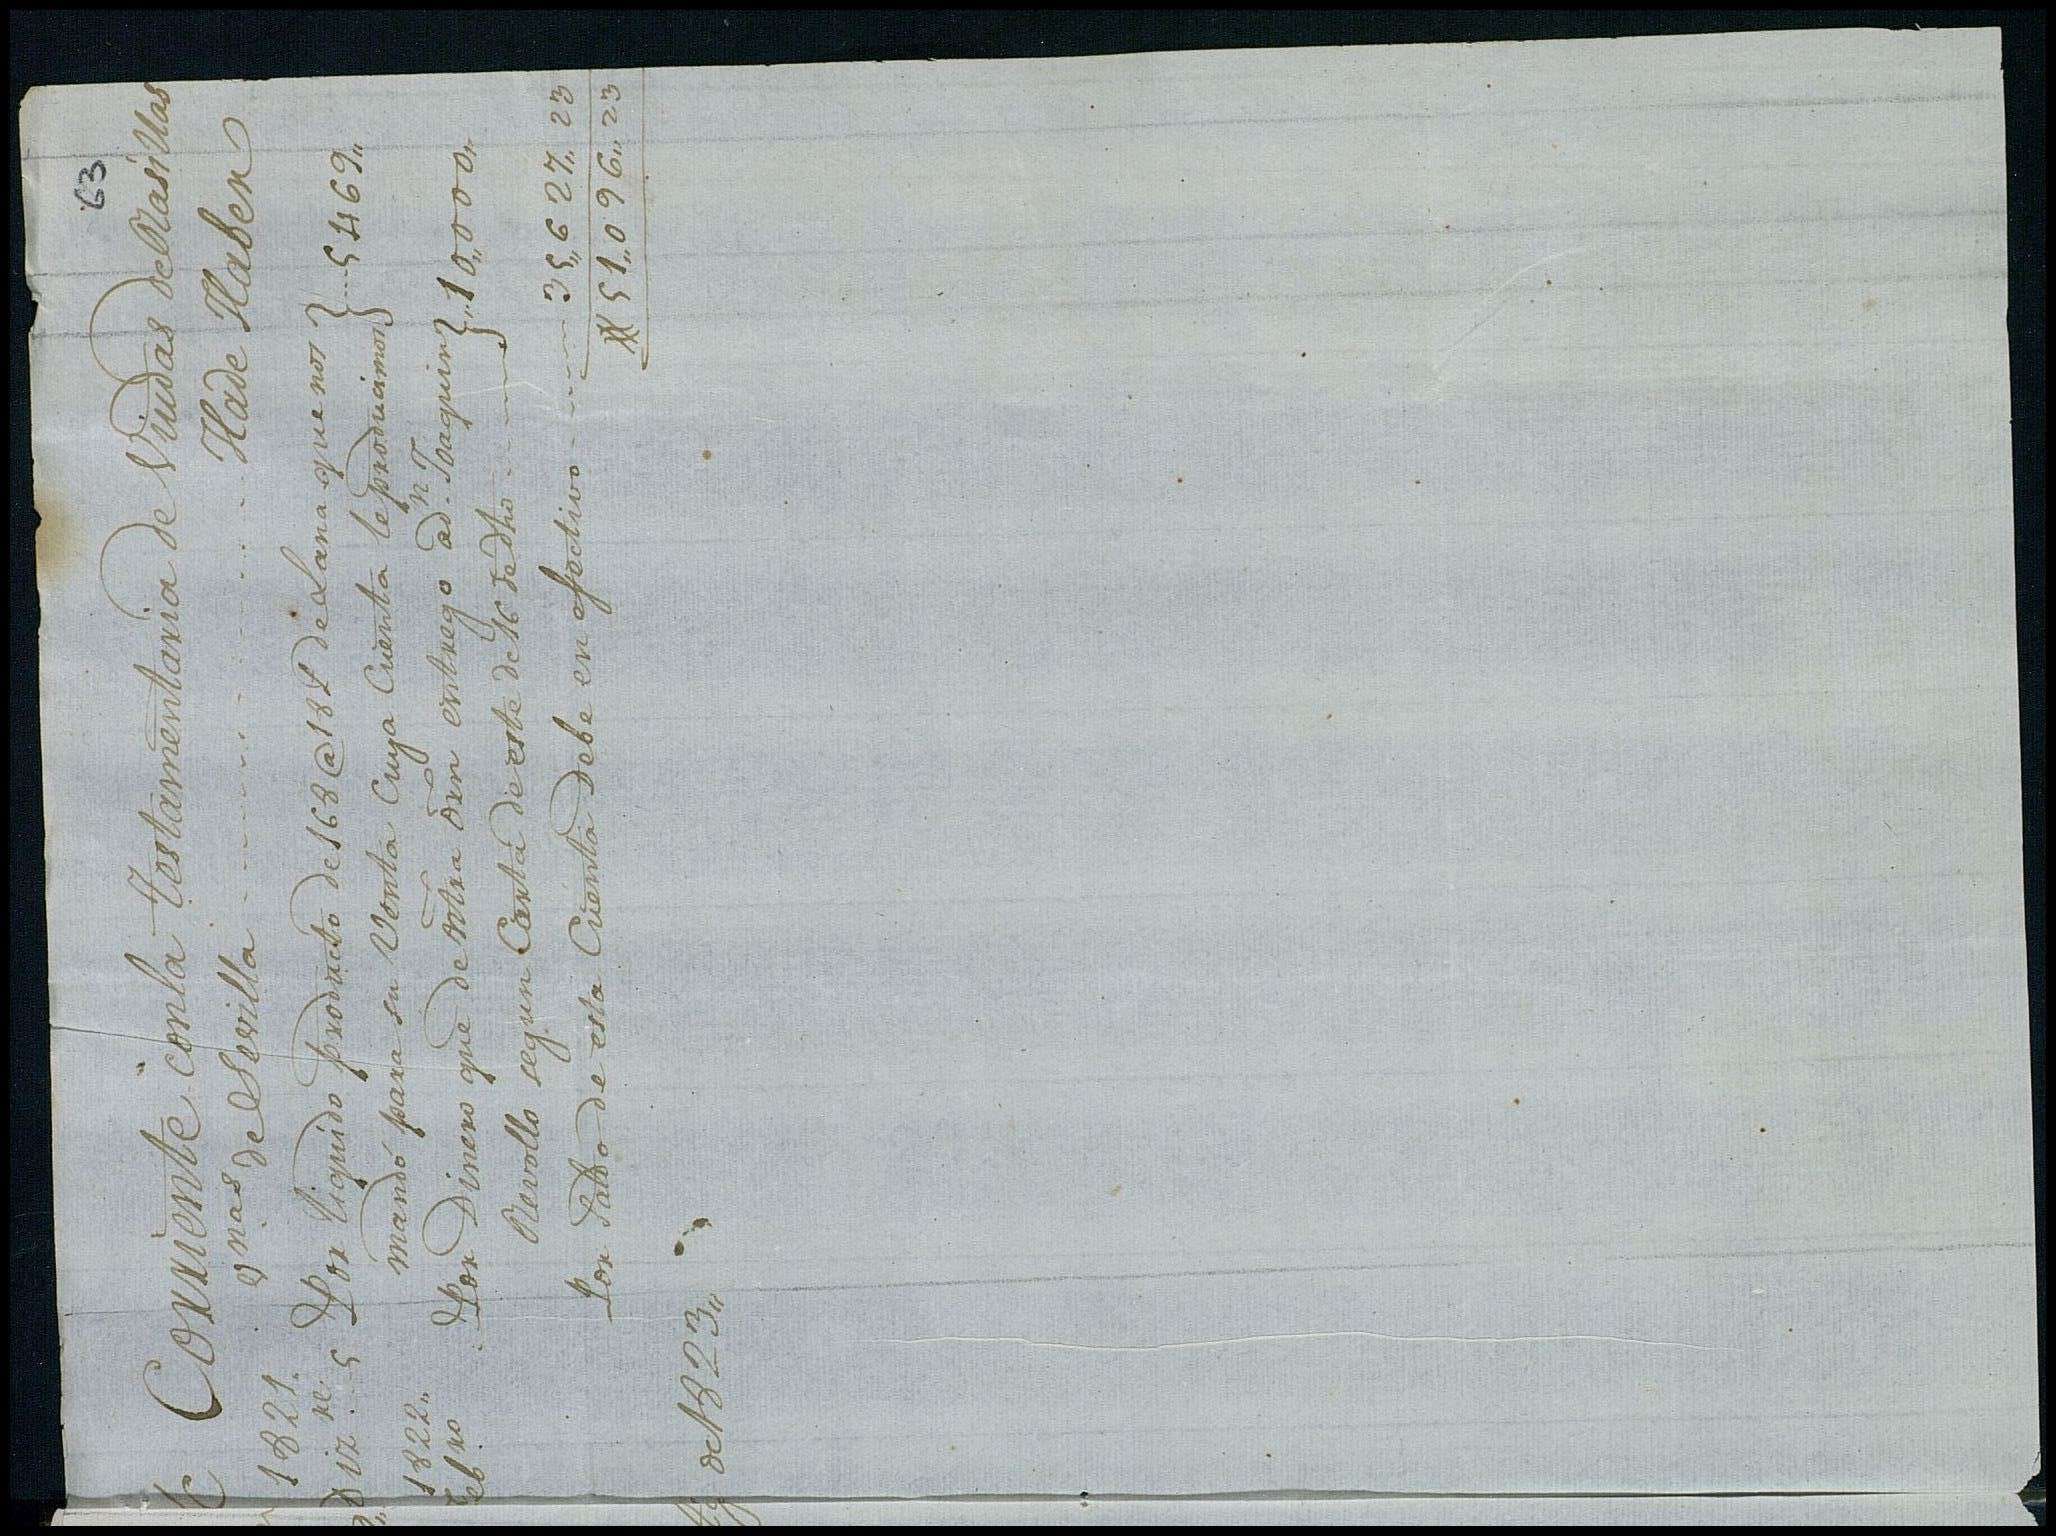 63
Corriente con la Testamentaria de Viudas de Rasillas
y nas de Sevilla Hade Haber
1821.
Diz re 5 Por liquido producto de 168 @ 18 de Lana que nos
mandó para su Venta Cuya Cuenta le producimos } 5469,,
1822,,
Febro Por Dinero que de ntra orn entrego a dn Joaquin
Revollo segun Carta de este de 16 de dho } 10,,000,,
Por Saldo de esta Cuenta Debe en efectivo 35,,627,,23
51,,096,,23
de 1823,,